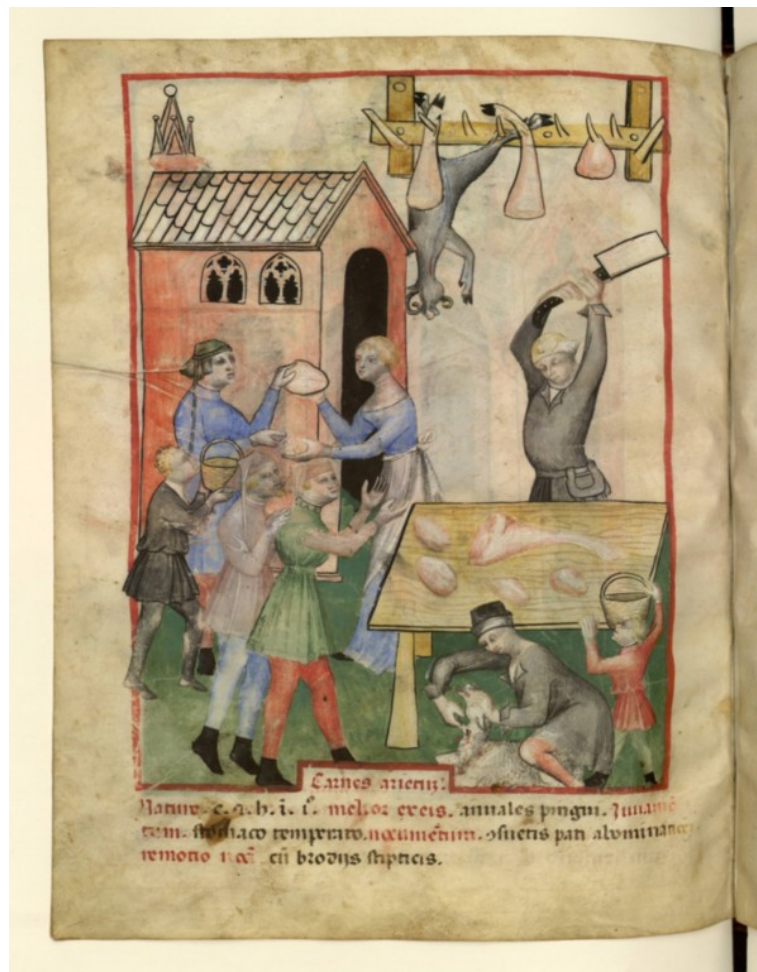 Carnes arietū:
Nature. c. ⁊. h. i. i°. melior ex eis. annuales pingui. Iuuamē
tum. stomaco temperato. nocumentum. ↄsuetis pati abominacōeꝫ
remotio cū brodijs stipticis.